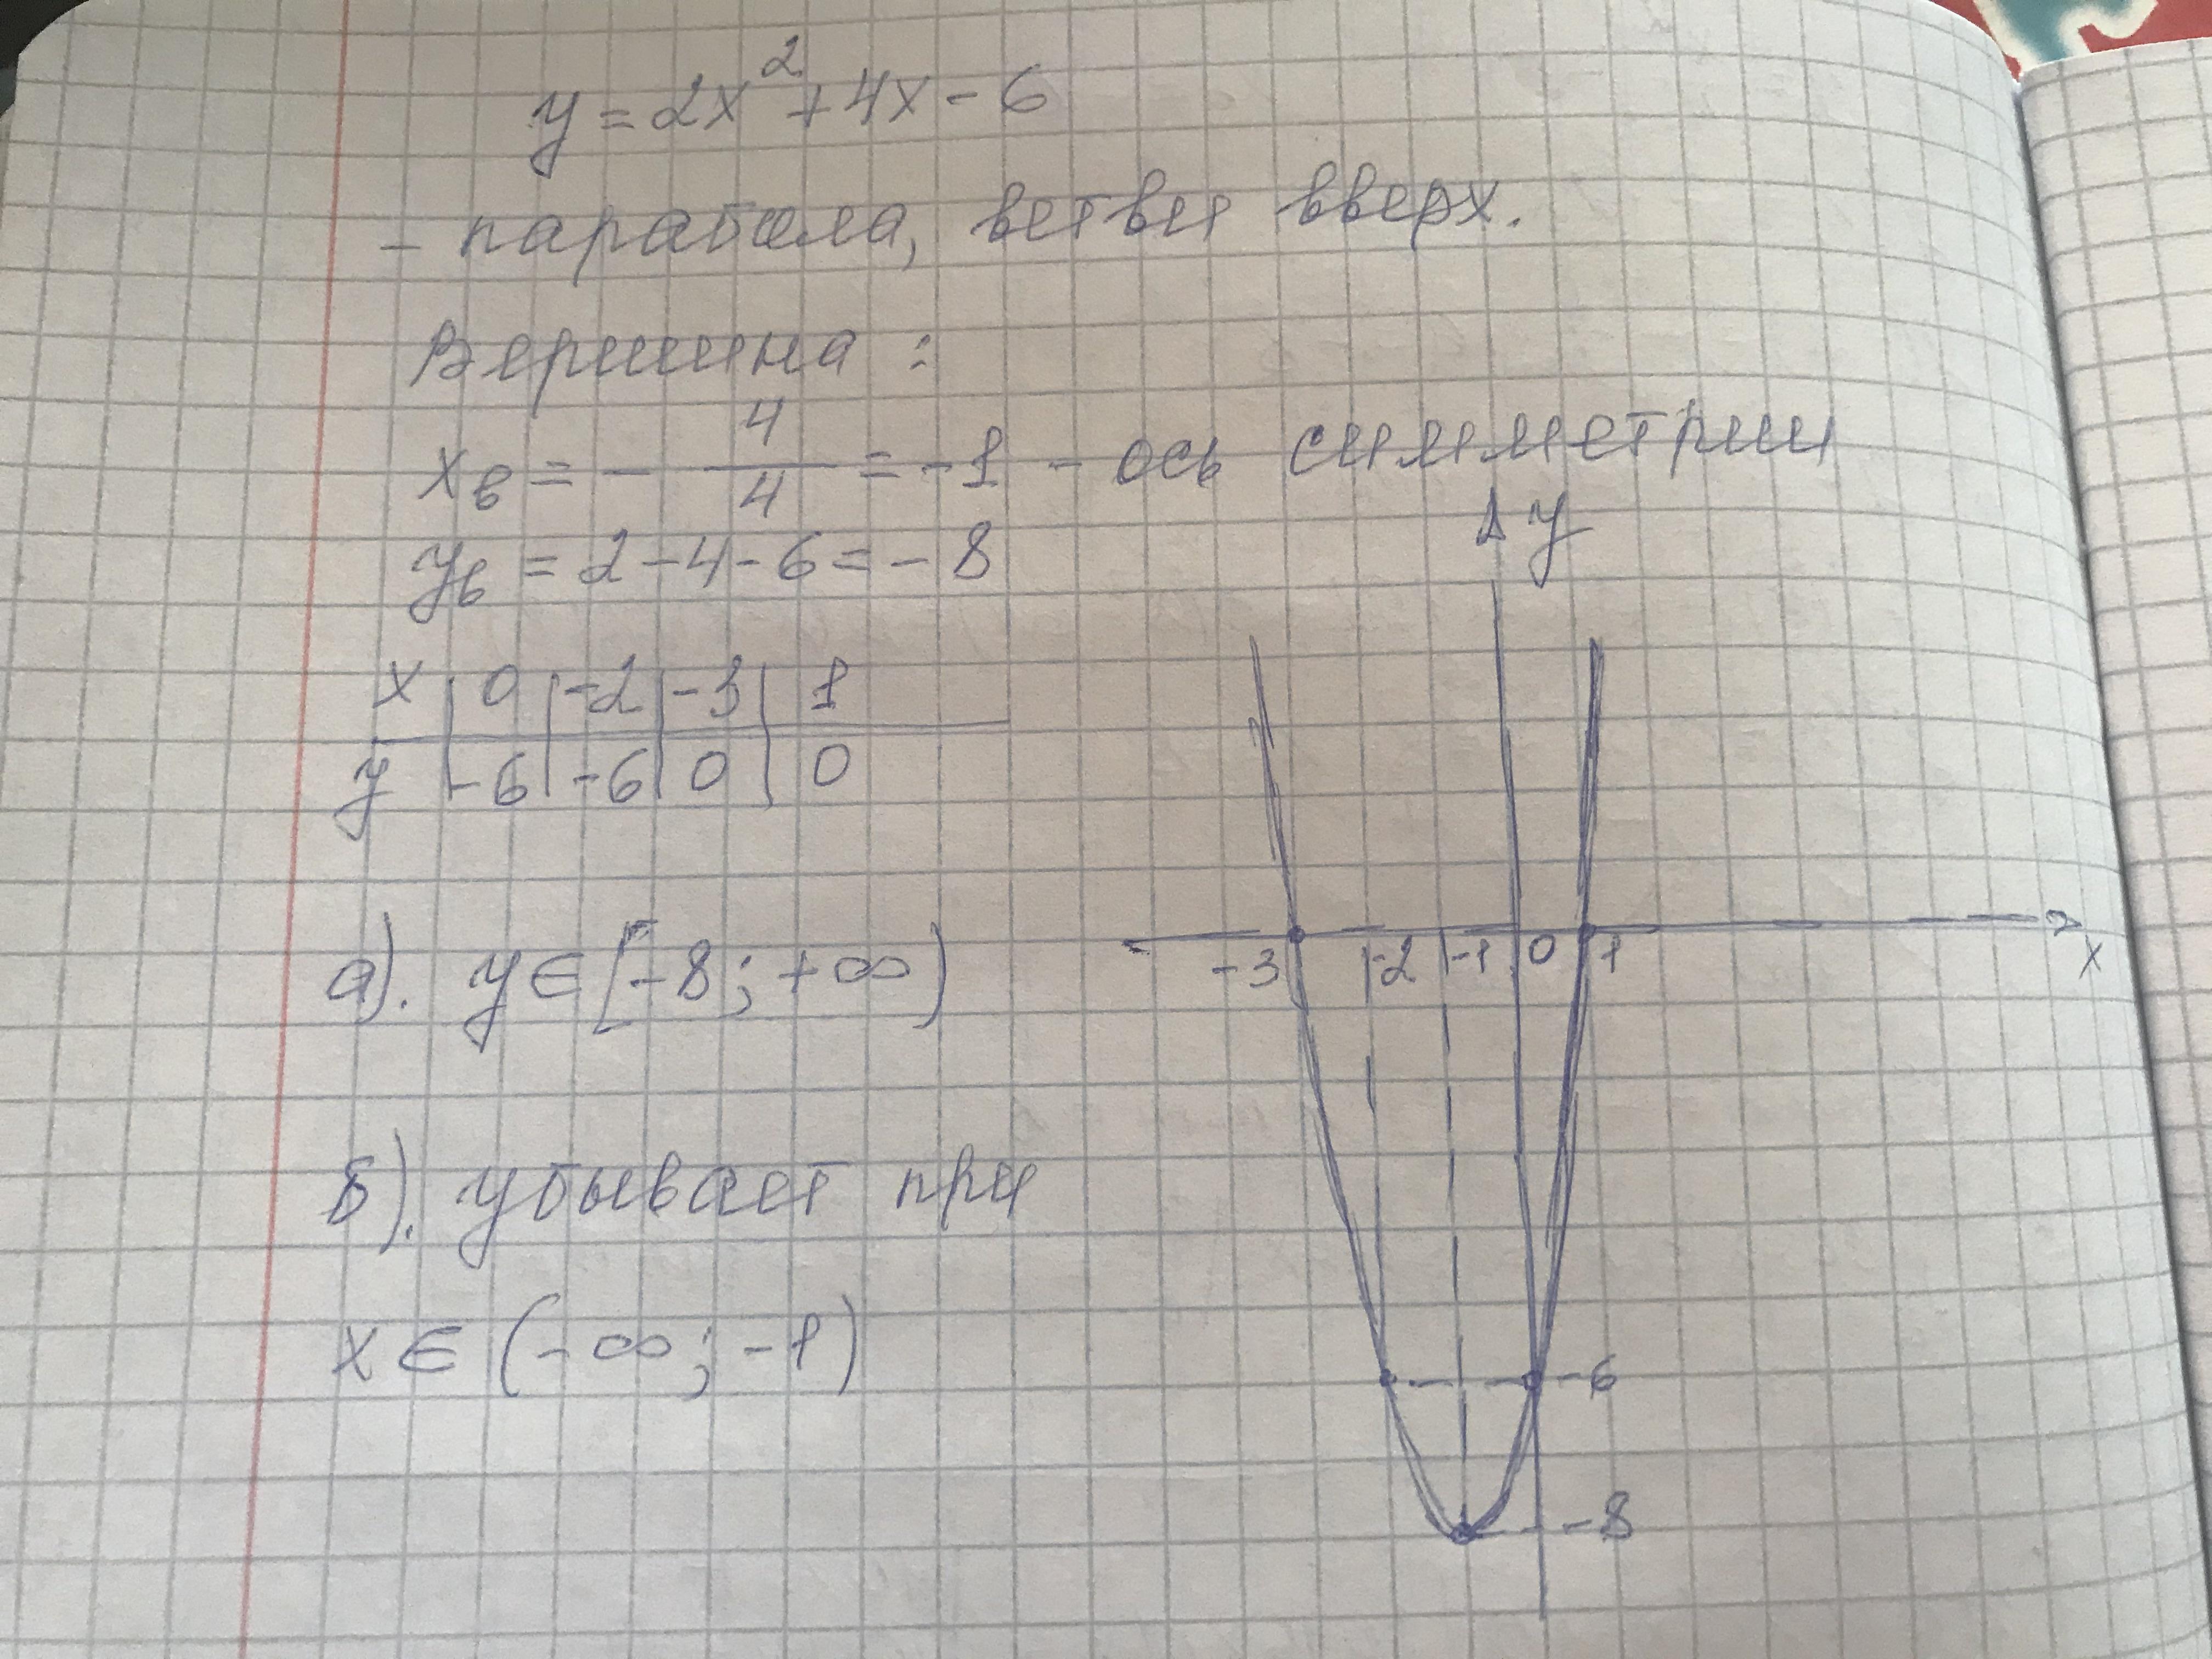 y = 2x² + 4x - 6
- парабола, ветви вверх.
Вершина :
xв = - 4/4 = -1 - ось симметрии
yв = 2 - 4 - 6 = - 8
x | 0 | -2 | -3 | 1
y | -6 | -6 | 0 | 0
y
-3 -2 -1 0 1 x
-6
-8
а). y ∈ [-8; +∞)
б). убывает при
x ∈ (-∞; -1)